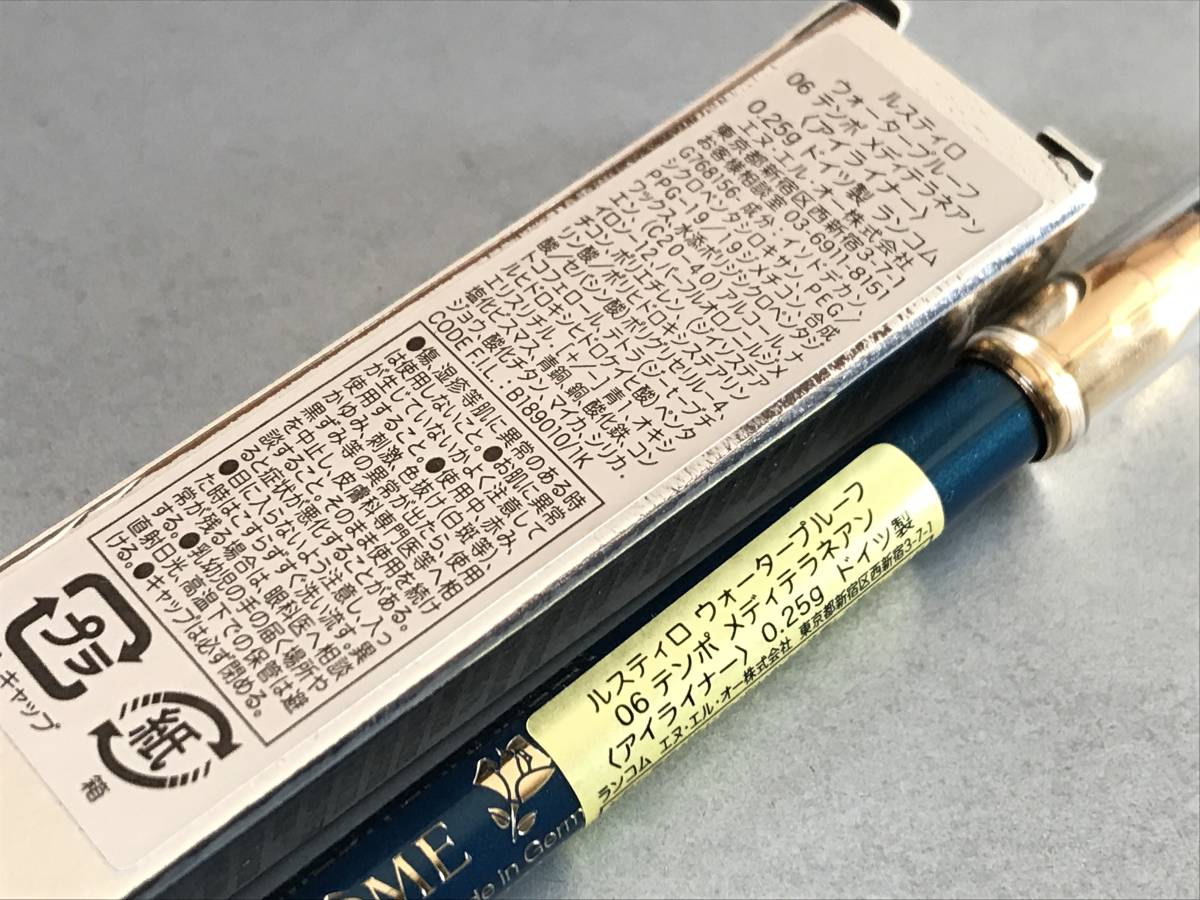 ルスティロ
ウォータープルーフ
06 テンポ メディテラネアン
〈アイライナー〉
0.25g ドイツ製 ランコム
エヌ・エル・オー株式会社
東京都新宿区西新宿3-7-1
お客様相談室 03-6911-8151
G768156 成分:イソドデカン,
シクロペンタシロキサン, PEG/
PPG-19/19ジメチコン, 合成
ワックス, 水添ポリシクロペンタジ
エン, (C20-40)アルコール, ナ
イロン-12, パーフルオロノニルジメ
チコン, ポリエチレン, (ジイソステア
リン酸/ポリヒドロキシステアリン
酸/セバシン酸)ポリグリセリル-4,
トコフェロール, テトラ(ジ-t-ブチ
ルヒドロキシヒドロケイヒ酸)ペンタ
エリスリチル, [+/-]青1, オキシ
塩化ビスマス, 青銅, 銅, 酸化鉄, コン
ジョウ, 酸化チタン, マイカ, シリカ.
CODE F.I.L. B189010/1K
●傷、湿疹等肌に異常のある時
は使用しないこと●お肌に異常
が生じていないかよく注意して
使用すること●使用中、赤み、
かゆみ、刺激、色抜け(白斑等)、
黒ずみ等の異常が出たら、使用
を中止し、皮膚科専門医等へ相
談すること。そのまま使用を続け
ると症状が悪化することがある。
●目に入らないよう注意し、入っ
た時はこすらずすぐ洗い流す。異
常が残る場合は、眼科医へ相談
する。●乳幼児の手の届く場所や
直射日光、高温下での保管は避
ける。●キャップは必ず閉める。
プラ
キャップ
紙
箱
ルスティロ ウォータープルーフ
06 テンポ メディテラネアン
〈アイライナー〉 0.25g ドイツ製
ランコム エヌ・エル・オー株式会社 東京都新宿区西新宿3-7-1
OME
de in Germ